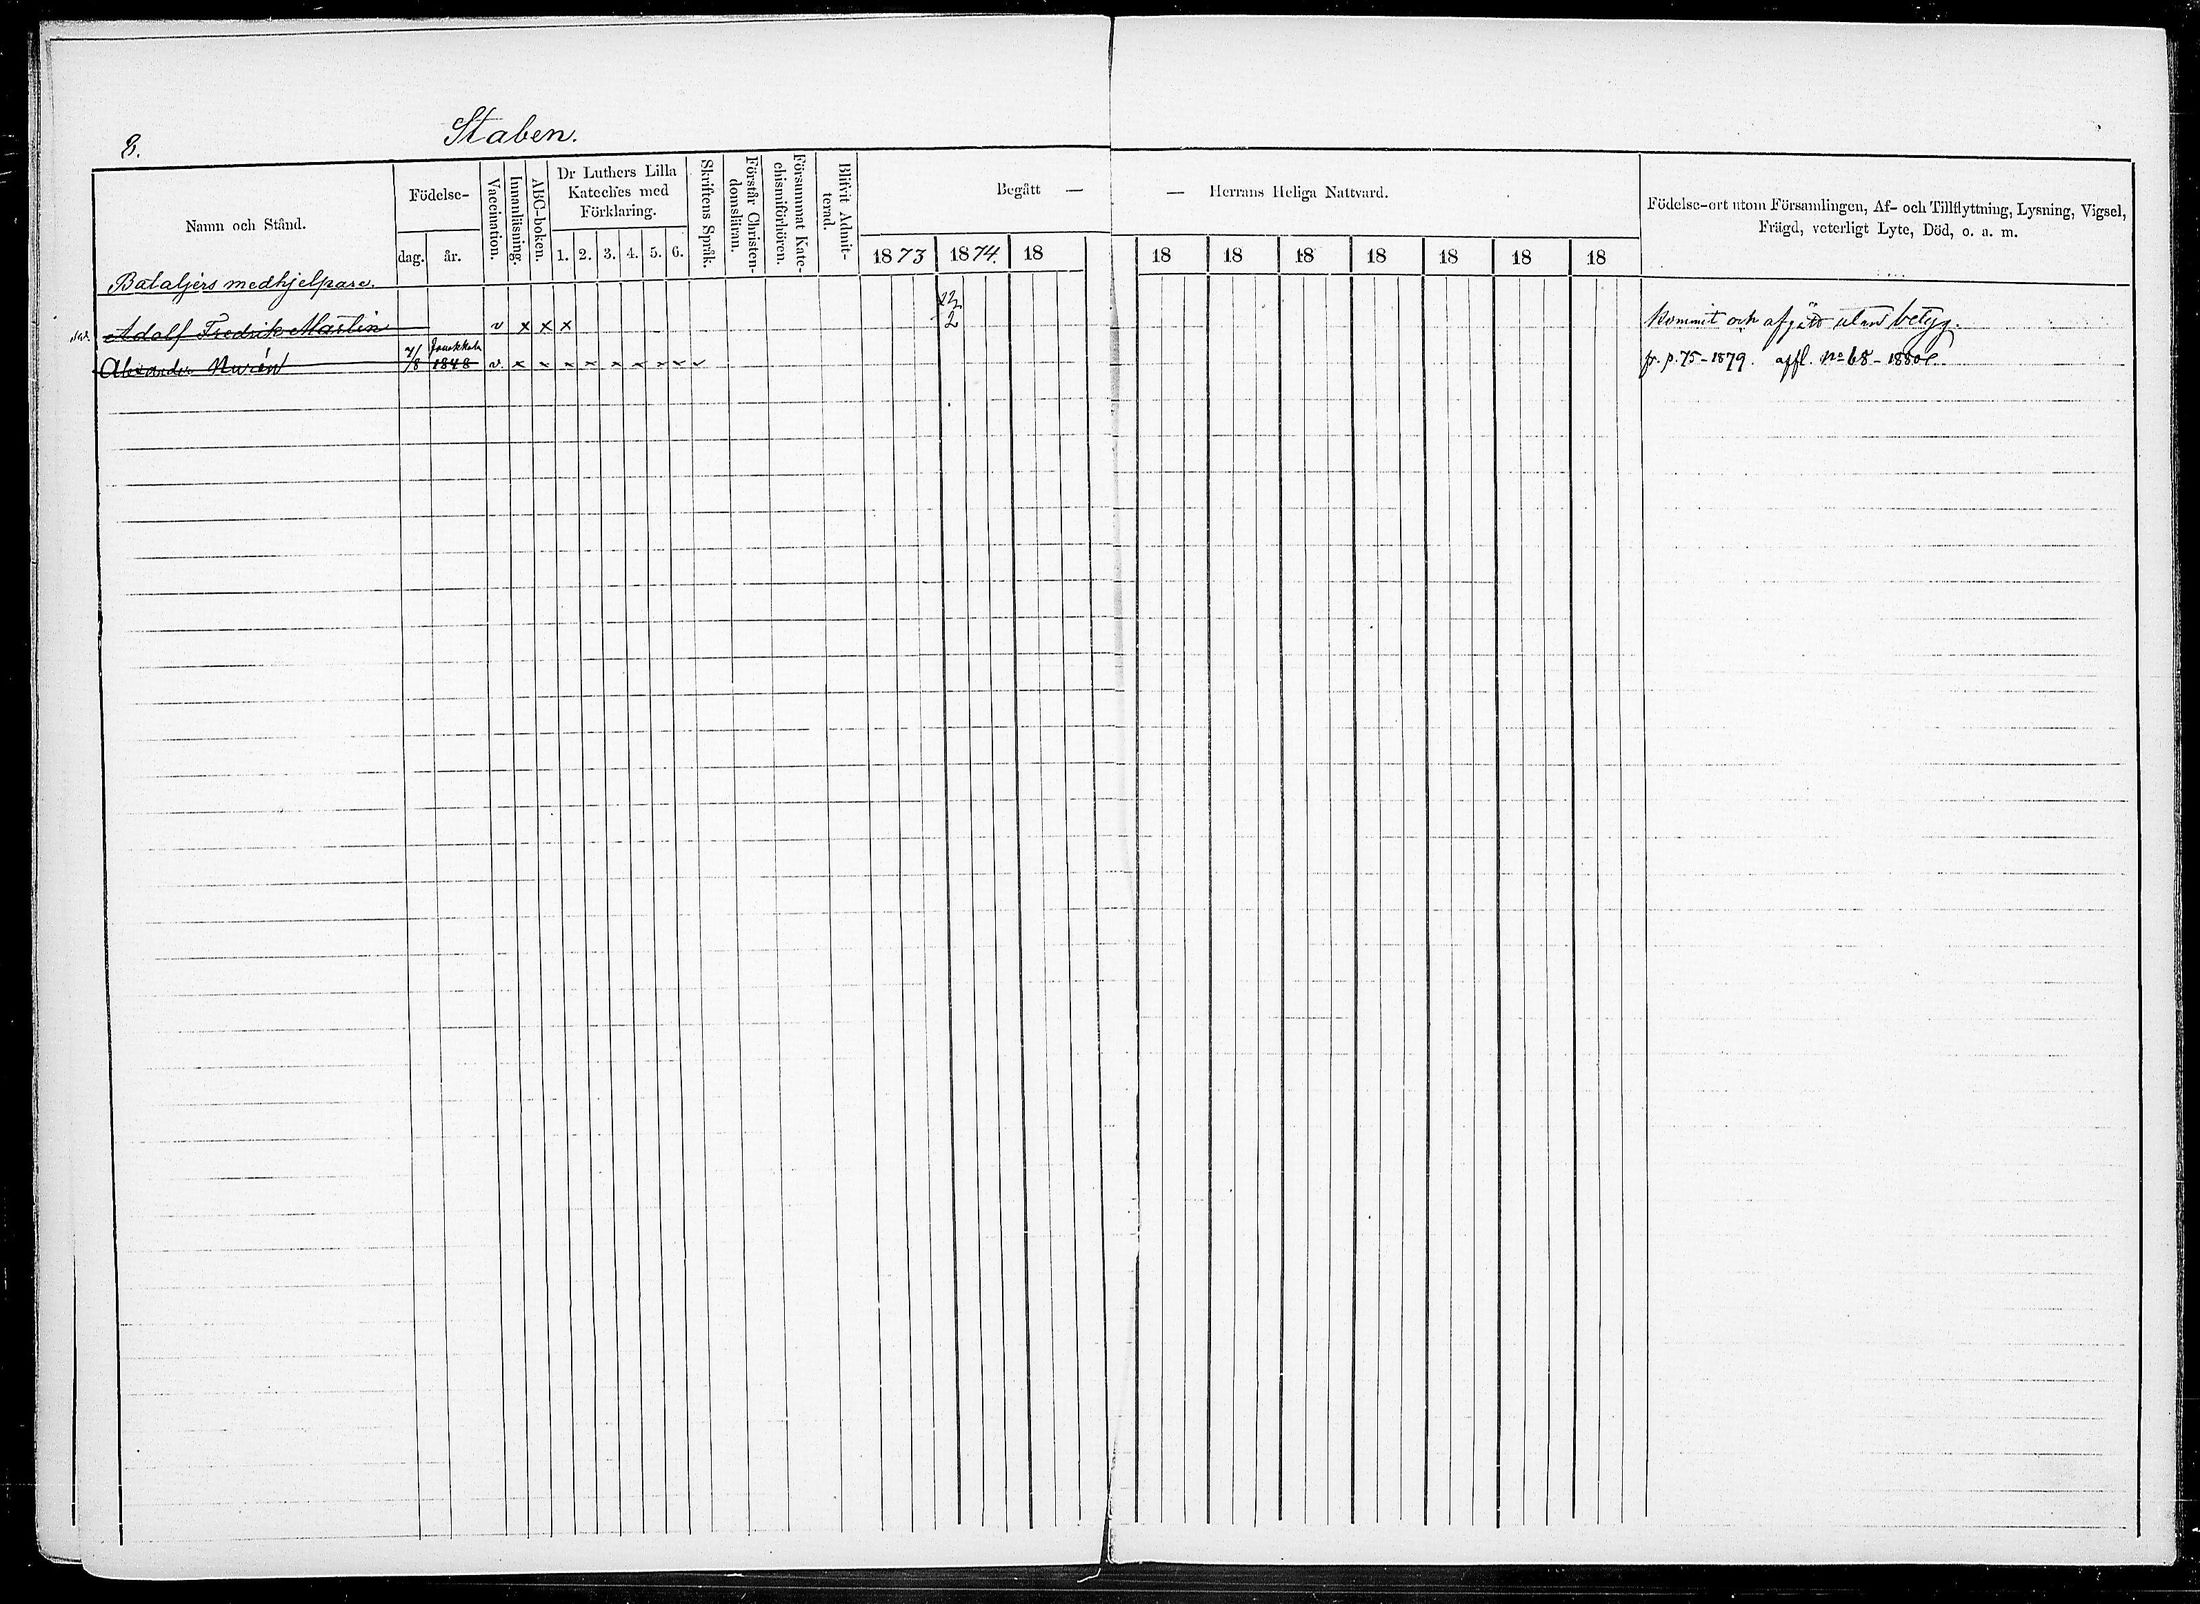 8. Staben.
Namn och Stånd.
Födelse-
dag. år.
Vaccination.
Innanläsning.
ABC-boken.
Dr Luthers Lilla
Kateches med
Förklaring.
1. 2. 3. 4. 5. 6.
Skriftens Språk.
Förstår Christen-
domsläran.
Försummat Kate-
chismiförhören.
Blifvit Admit-
terad.
Begått — — Herrans Heliga Nattvard.
1873 1874. 18 18 18 18 18 18 18 18
Födelse-ort utom Församlingen, Af- och Tillflyttning, Lysning, Vigsel,
Frägd, veterligt Lyte, Död, o. a. m.
Bataljérs medhjelpare.
Adolf Fredrik Martin v x x x 2 kommit och afgått utan betyg.
Janakkala
Alexander Nurén 7/8 1848 v x x x x x x x x fr. p. 75-1879. affl. No 68-1880